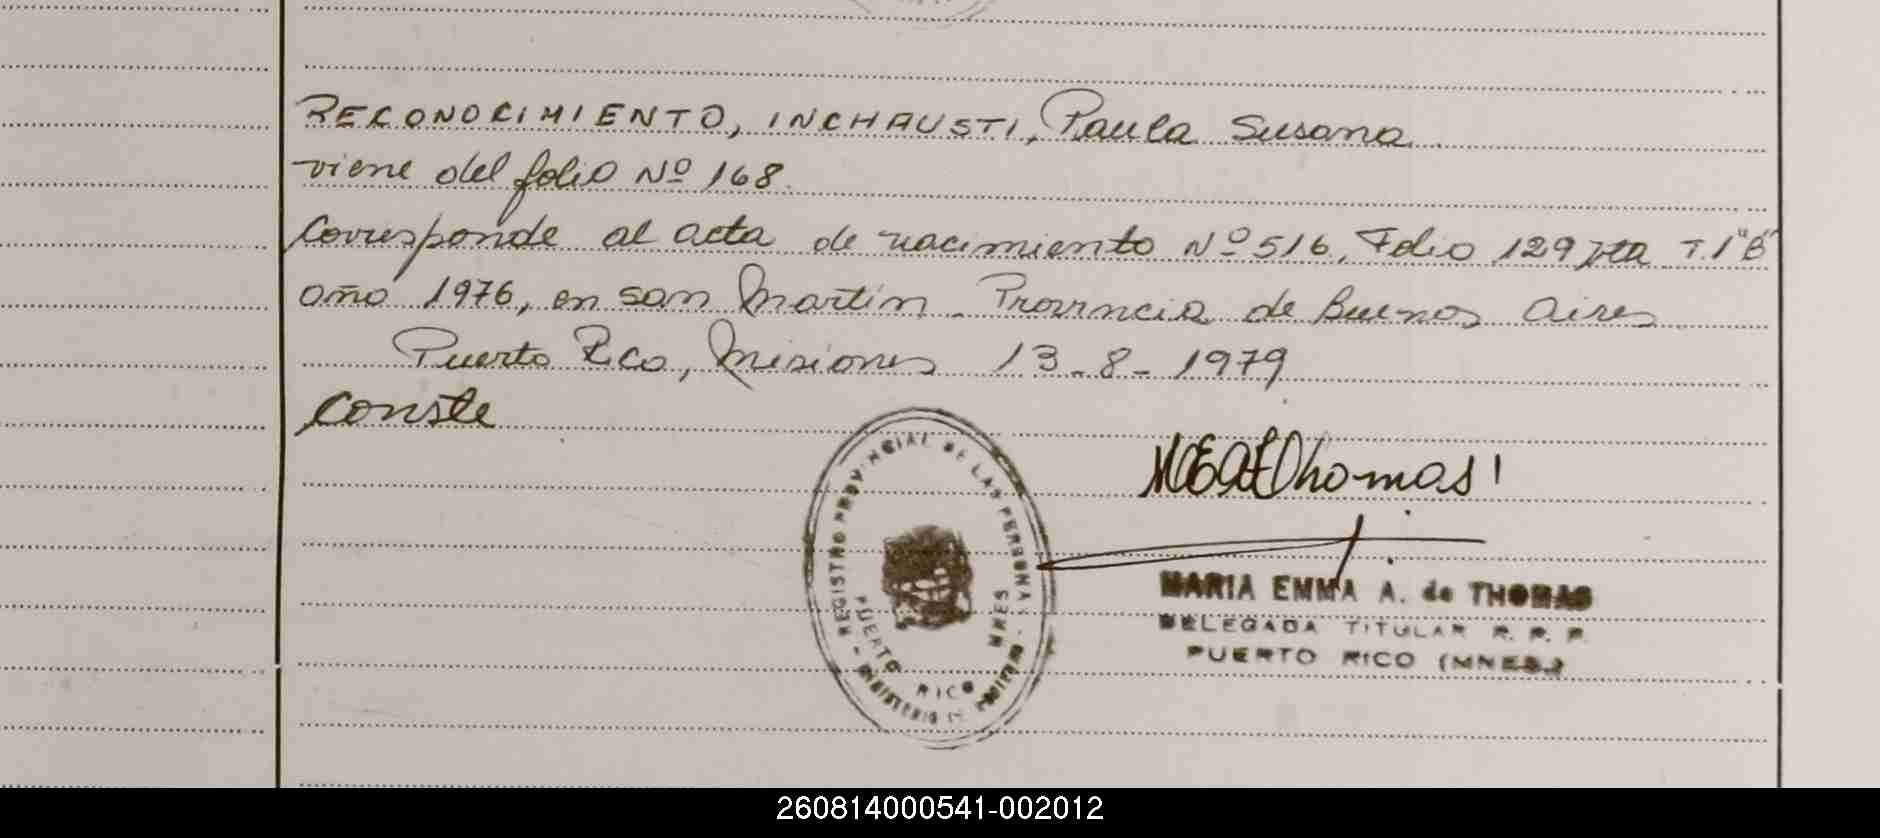 RECONOCIMIENTO, INCHAUSTI, Paula Susana
viene del folio Nº 168.
Corresponde al acta de nacimiento Nº 516, Folio 129 vta T.1"B"
año 1976, en San Martín - Provincia de Buenos Aires.
Puerto Rico, Misiones 13-8-1979
Conste
REGISTRO PROVINCIAL DE LAS PERSONAS
PUERTO RICO
MNES
MINISTERIO DE
MARIA EMMA A. de THOMAS
DELEGADA TITULAR R. P. P.
PUERTO RICO (MNES.)
260814000541-002012